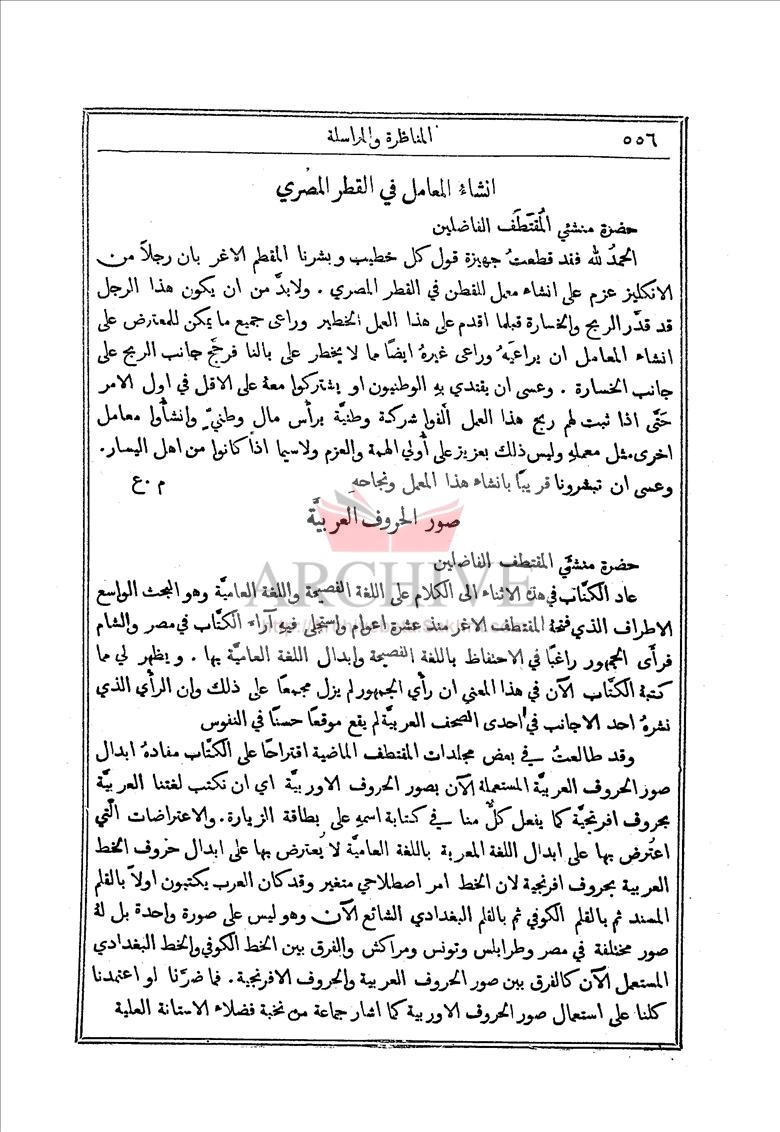 ٥٥٦ المناظرة والمراسلة
انشاءُ المعامل في القطر المصري
حضرة منشئي المُقتَطَف الفاضلين
الحمدُ لله فقد قطعتُ جهيزة قول كل خطيب وبشرنا المقطم الاغر بان رجلاً من
الانكليز عزم على انشاء معمل للقطن في القطر المصري . ولا بدَّ من ان يكون هذا الرجل
قد قدَّر الربح والخسارة قبلما اقدم على هذا العمل الخطير وراعى جميع ما يمكن للمعترض على
انشاء المعامل ان يراعيَهُ وراعى غيرهُ ايضًا مما لا يخطر على بالنا فرجَّح جانب الربح على
جانب الخسارة . وعسى ان يقتدي بهِ الوطنيون او يشتركوا معهُ على الاقل في اول الامر
حَتَّى اذا ثبت لهم ربح هذا العمل الَّفوا شركة وطنيَّة برأس مال وطنيٍّ وانشأوا معامل
اخرى مثل معملهِ وليس ذلك بعزيز على أُولي الهمة والعزم ولاسيما اذا كانوا من اهل اليسار.
وعسى ان تبشرونا قريبًا بانشاء هذا المعمل ونجاحهِ م ٠ع
صور الحروف العربيَّة
حضرة منشئي المقتطف الفاضلين
ARCHIVE
عاد الكتَّاب في هذه الاثناء الى الكلام على اللغة الفصيحة واللغة العاميَّة وهو المبحث الواسع
الاطراف الذي فتحهُ المقتطف الاغر منذ عشرة اعوام واستجلى فيهِ آراء الكتَّاب في مصر والشام
فرأَى الجمهور راغبًا في الاحتفاظ باللغة الفصيحة وابدال اللغة العاميَّة بها . ويظهر لي مما
كتبهُ الكتَّاب الآن في هذا المعنى ان رأي الجمهور لم يزل مجمعًا على ذلك وان الرأي الذي
نشرهُ احد الاجانب في احدى الصحف العربيَّة لم يقع موقعًا حسنًا في النفوس
وقد طالعتُ في بعض مجلدات المقتطف الماضية اقتراحًا على الكتَّاب مفادهُ ابدال
صور الحروف العربيَّة المستعملة الآن بصور الحروف الاوربيَّة اي ان نكتب لغتنا العربيَّة
بحروف افرنجيَّة كما يفعل كلٌّ منا في كتابة اسمهِ على بطاقة الزيارة. والاعتراضات الَّتي
اعتُرض بها على ابدال اللغة المعربة باللغة العاميَّة لا يُعترض بها على ابدال حروف الخط
العربية بحروف افرنجية لان الخط امر اصطلاحي متغير وقد كان العرب يكتبون اولاً بالقلم
المسند ثم بالقلم الكوفي ثم بالقلم البغدادي الشائع الآن وهو ليس على صورة واحدة بل لهُ
صور مختلفة في مصر وطرابلس وتونس ومراكش والفرق بين الخط الكوفي والخط البغدادي
المستعمل الآن كالفرق بين صور الحروف العربية والحروف الافرنجية . فما ضرَّنا لو اعتمدنا
كلنا على استعمال صور الحروف الاوربية كما اشار جماعة من نخبة فضلاء الاستانة العلية